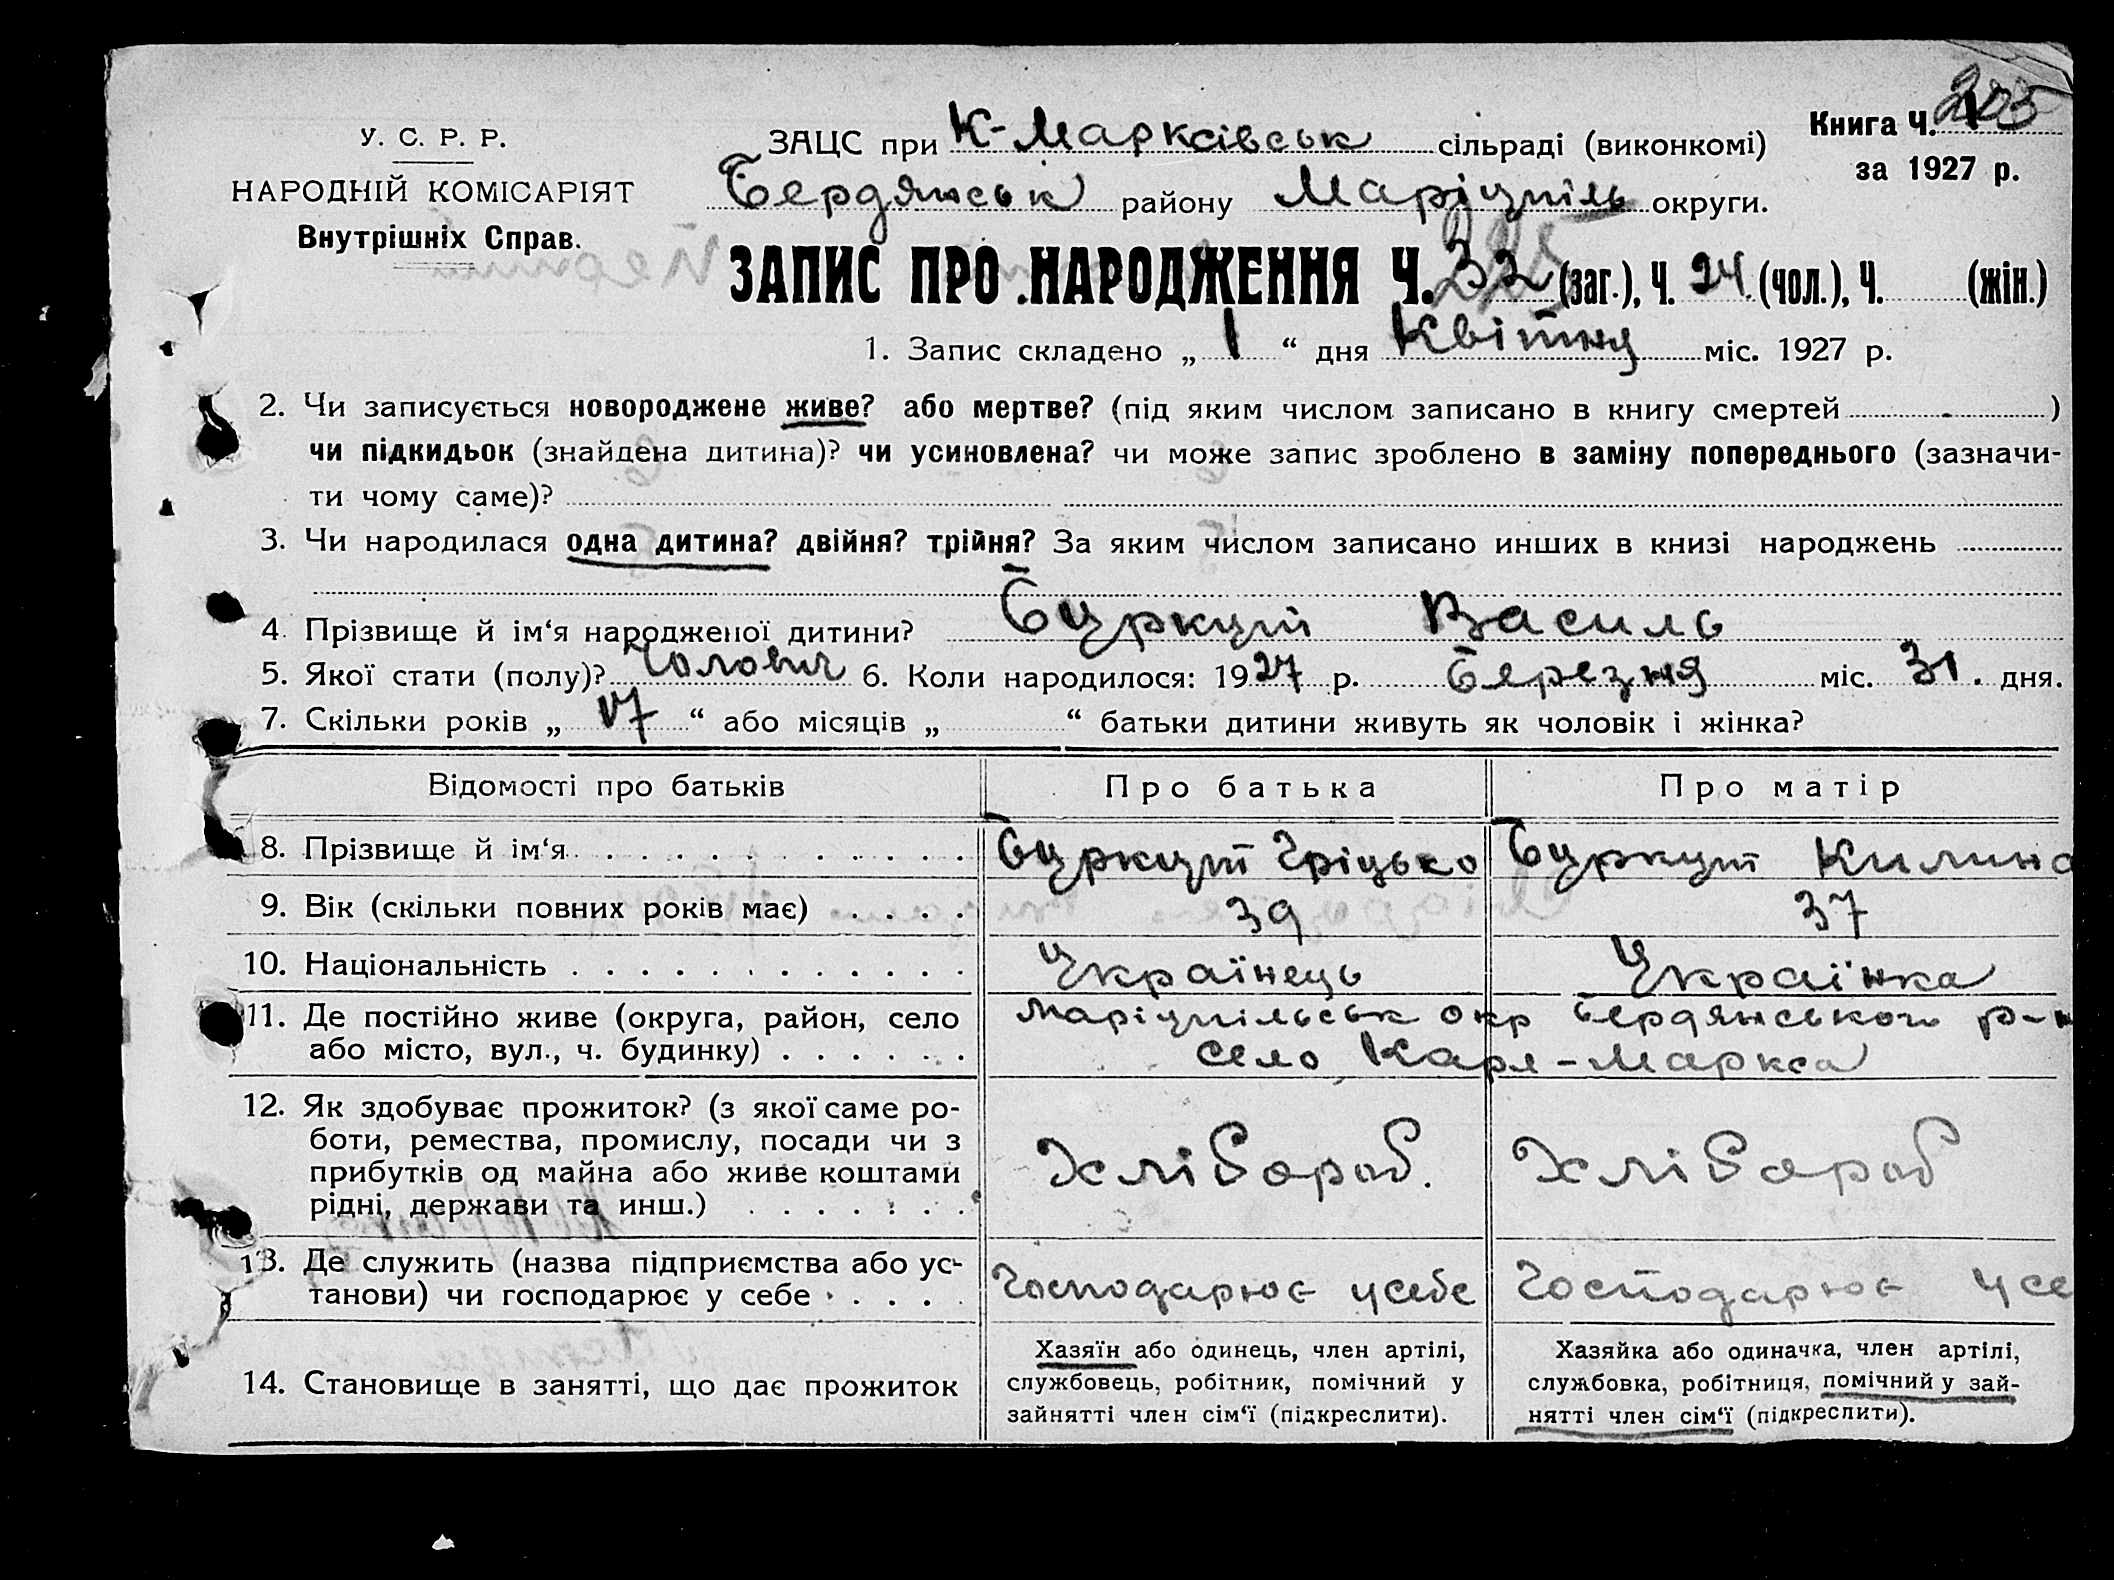 У. С. Р. Р.
НАРОДНІЙ КОМІСАРІЯТ
Внутрішніх Справ.
ЗАЦС при К-Марксівськ сільраді (виконкомі)
Бердянськ району Маріупіль округи.
Книга Ч. 1
205
за 1927 р.
ЗАПИС ПРО НАРОДЖЕННЯ Ч. 32 (заг.), Ч. 24 (чол.), Ч. (жін.)
1. Запис складено „ 1 “ дня Квітня міс. 1927 р.
2. Чи записується новороджене живе? або мертве? (під яким числом записано в книгу смертей )
чи підкидьок (знайдена дитина)? чи усиновлена? чи може запис зроблено в заміну попереднього (зазначи-
ти чому саме)?
3. Чи народилася одна дитина? двійня? трійня? За яким числом записано инших в книзі народжень
4. Прізвище й ім‘я народженої дитини? Буркут Василь
5. Якої стати (полу)? Чоловіч 6. Коли народилося: 1927 р. Березня міс. 31. дня.
7. Скільки років „ 17 “ або місяців „ “ батьки дитини живуть як чоловік і жінка?
Відомості про батьків Про батька Про матір
8. Прізвище й ім‘я Буркут Гріцько Буркут Килина
9. Вік (скільки повних років має) 39 37
10. Національність Українець Українка
11. Де постійно живе (округа, район, село Маріупільськ окр Бердянського р-н
або місто, вул., ч. будинку) село Карл-Маркса
12. Як здобуває прожиток? (з якої саме ро-
боти, ремества, промислу, посади чи з
прибутків од майна або живе коштами
рідні, держави та инш.) Хлібороб. Хлібороб
13. Де служить (назва підприємства або ус-
танови) чи господарює у себе Господарює усебе Господарює усе
14. Становище в занятті, що дає прожиток
Хазяїн або одинець, член артілі,
службовець, робітник, помічний у
зайнятті член сім‘ї (підкреслити).
Хазяйка або одиначка, член артілі,
службовка, робітниця, помічний у зай-
нятті член сім‘ї (підкреслити).